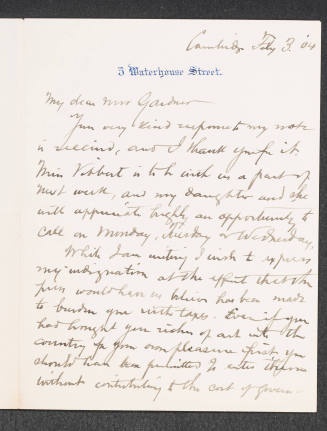 Cambridge Feby 3. '04
5 Waterhouse Street.
My dear Mrs Gardner
Your very kind response to my note
is received, and I thank you for it.
Miss Vibbert is to be with us a part of
next week, and my daughter and she
will appreciate highly an opportunity to
call on Monday, Tuesday or Wednesday.
While I am writing I wish to express
my indignation at the effort that the
press would have us believe has been made
to burden you with taxes. Even if you
had brought your riches of art into the
country for your own pleasure first, you
should have been permitted to enter them
without contributing to the cost of govern-